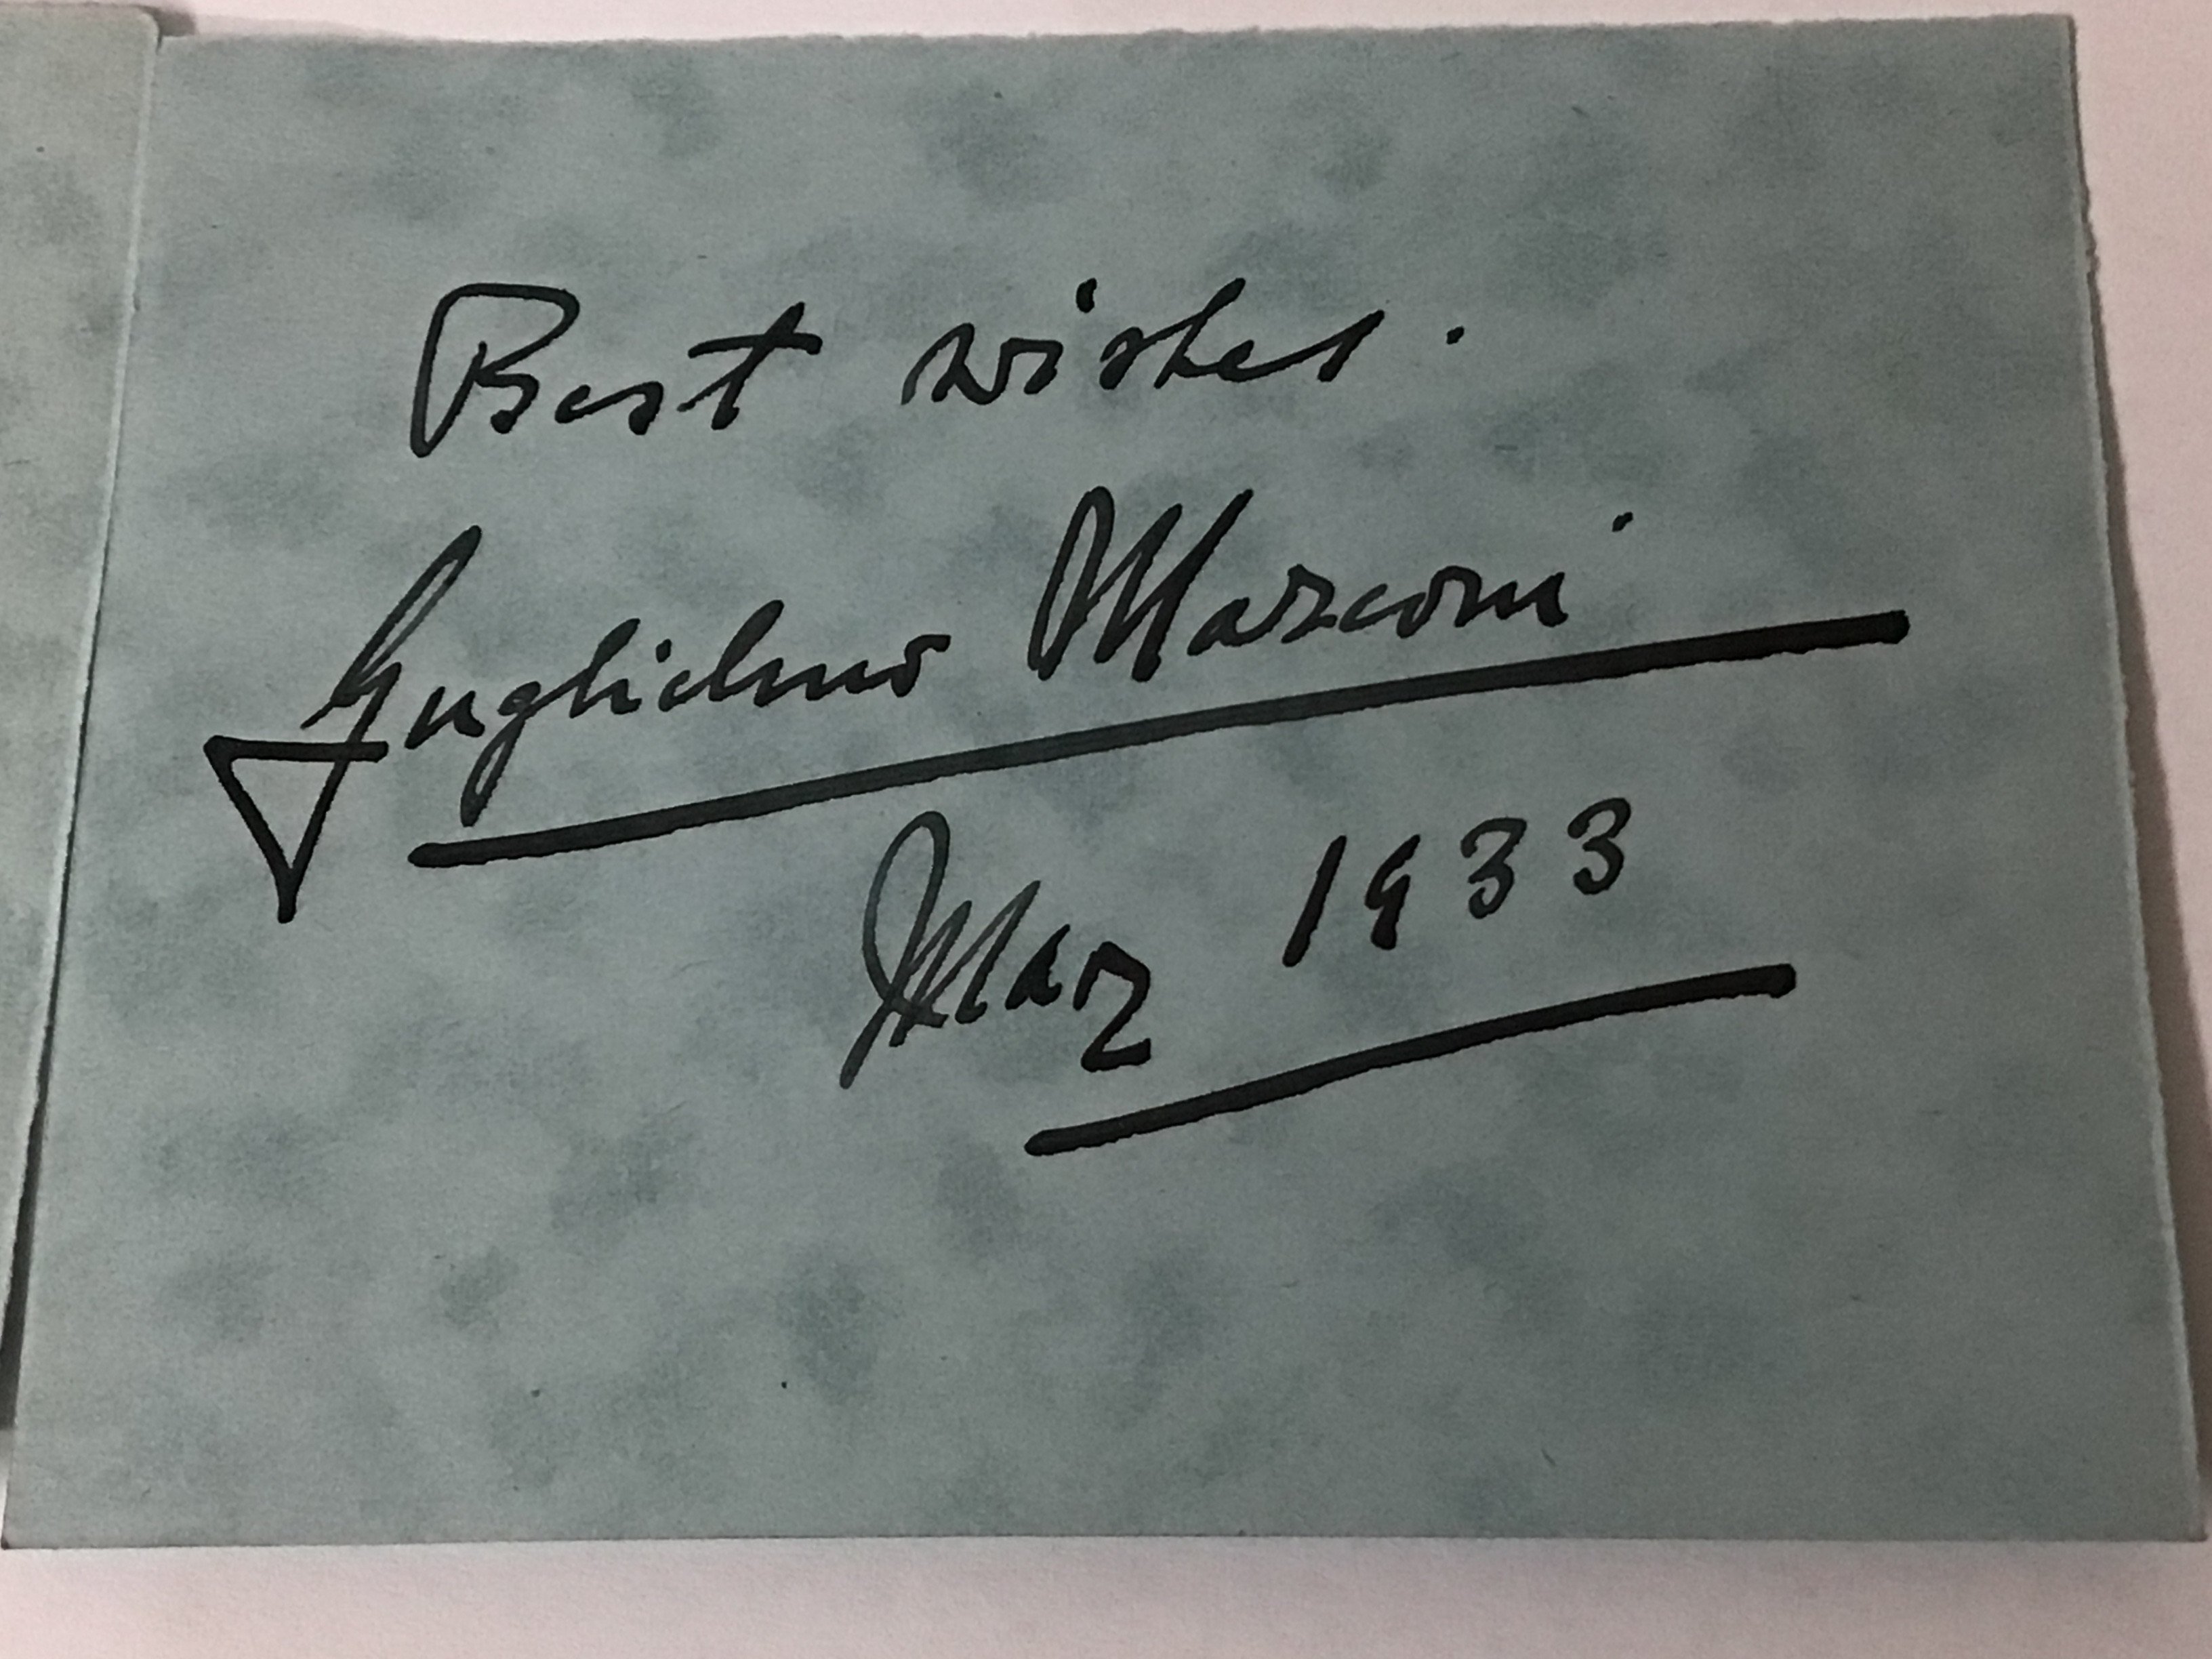 Best wishes.
Guglielmo Marconi
Mar 1933